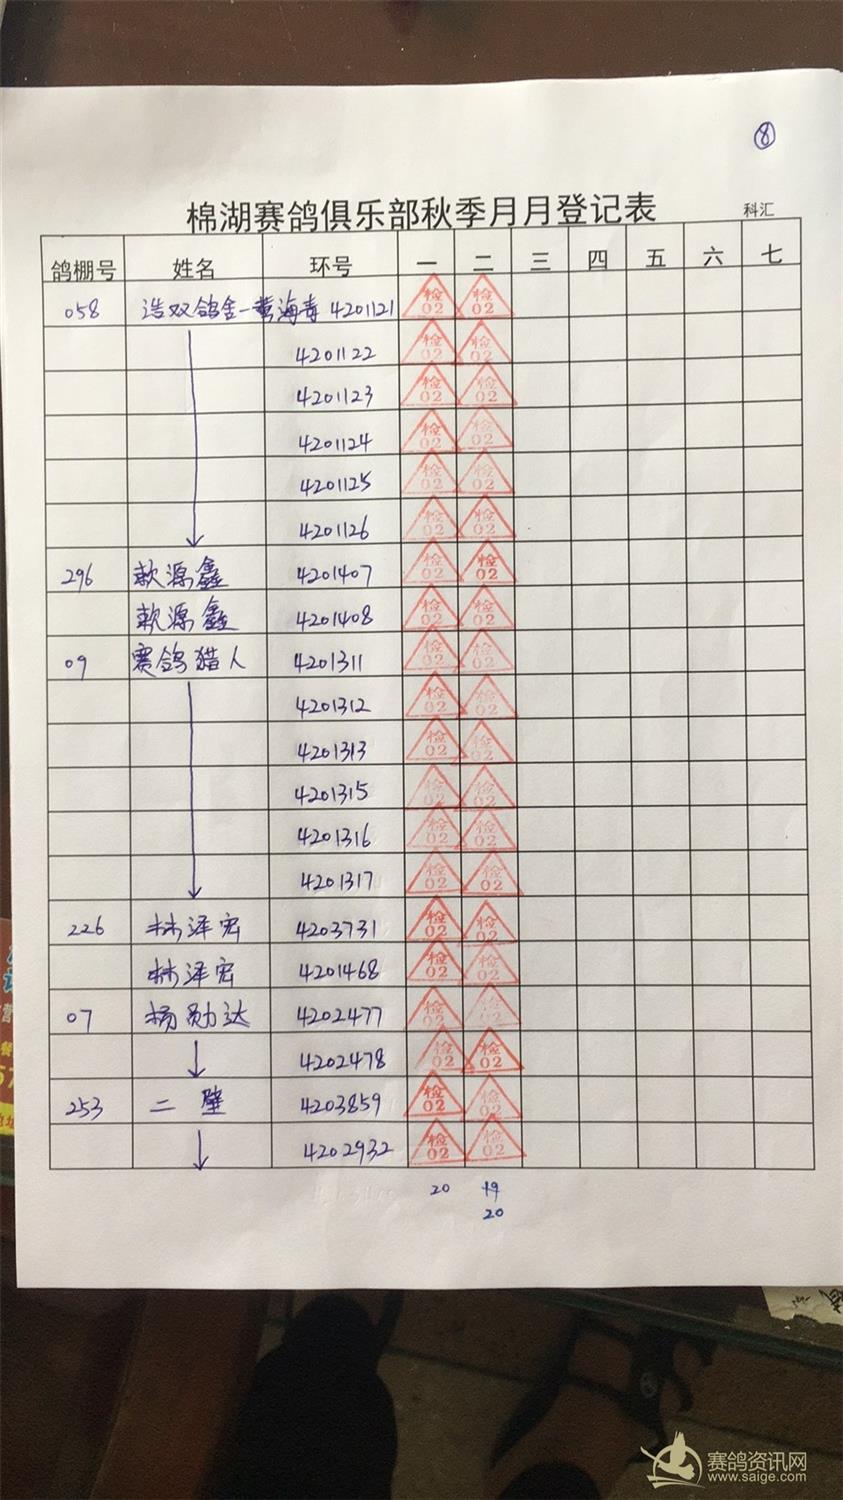 ⑧
棉湖赛鸽俱乐部秋季月月登记表 科汇
鸽棚号 姓名 环号 一 二 三 四 五 六 七
058 浩双鸽舍-黄海 4201121 检02 检02
4201122 检02 检02
4201123 检02 检02
4201124 检02 检02
4201125 检02 检02
4201126 检02 检02
296 歀源鑫 4201407 检02 检02
歀源鑫 4201408 检02 检02
09 赛鸽猎人 4201311 检02 检02
4201312 检02 检02
4201313 检02 检02
4201315 检02 检02
4201316 检02 检02
4201317 检02 检02
226 林泽宏 4203731 检02 检02
林泽宏 4201468 检02 检02
07 杨勋达 4202477 检02 检02
4202478 检02 检02
253 二壁 4203859 检02 检02
4202932 检02 检02
20 19
20
赛鸽资讯网
www.saige.com